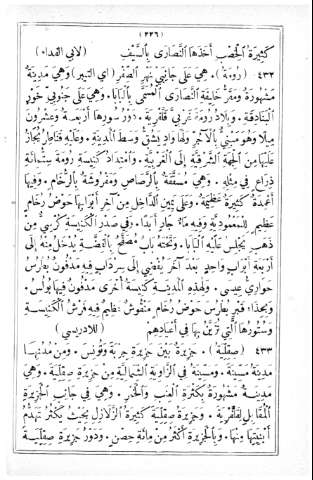 (٢٢٦)
كَثِيرَةُ الْخِصْبِ أَخَذَهَا النَّصَارَى بِالسَّيْفِ (لابي الفداء)
٤٣٢ (رُومَةُ). هِيَ عَلَى جَانِبَيْ نَهْرِ الصُّفْرِ (اي التيبر) وَهِيَ مَدِينَةٌ
مَشْهُورَةٌ وَمَقَرُّ خَلِيفَةِ النَّصَارَى الْمُسَمَّى بِالْبَابَا. وَهِيَ عَلَى جَنُوبِيِّ خَوْرِ
الْبَنَادِقَةِ. وَبِلَادُ رُومَةَ غَرْبِيَّ قَلَفْرِيَةَ. دَوْرُ سُورِهَا أَرْبَعَةٌ وَعِشْرُونَ
مِيلًا وَهُوَ مَبْنِيٌّ بِالْآجُرِّ وَلَهَا وَادٍ يَشُقُّ وَسَطَ الْمَدِينَةِ. وَعَلَيْهِ قَنَاطِرُ يُجَازُ
عَلَيْهَا مِنَ الْجِهَةِ الشَّرْقِيَّةِ إِلَى الْغَرْبِيَّةِ. وَامْتِدَادُ كَنِيسَةِ رُومَةَ سِتُّمِائَةِ
ذِرَاعٍ فِي مِثْلِهِ. وَهِيَ مُسَقَّفَةٌ بِالرَّصَاصِ وَمَفْرُوشَةٌ بِالرُّخَامِ. وَفِيهَا
أَعْمِدَةٌ كَثِيرَةٌ عَظِيمَةٌ. وَعَلَى يَمِينِ الدَّاخِلِ مِنْ آخِرِ أَبْوَابِهَا حَوْضُ رُخَامٍ
عَظِيمٌ لِلْمَعْمُودِيَّةِ وَفِيهِ مَاءٌ جَارٍ أَبَدًا. وَفِي صَدْرِ الْكَنِيسَةِ كُرْسِيٌّ مِنْ
ذَهَبٍ يَجْلِسُ عَلَيْهِ الْبَابَا. وَتَحْتَهُ بَابٌ مُصَفَّحٌ بِالْفِضَّةِ يُدْخَلُ مِنْهُ إِلَى
أَرْبَعَةِ أَبْوَابٍ وَاحِدٍ بَعْدَ آخَرَ يُفْضِي إِلَى سِرْدَابٍ فِيهِ مَدْفُونٌ بُطْرُسُ
حَوَارِيُّ عِيسَى. وَلِهٰذِهِ الْمَدِينَةِ كَنِيسَةٌ أُخْرَى مَدْفُونٌ فِيهَا بُولُسُ.
وَبِحِذَاءِ قَبْرِ بُطْرُسَ حَوْضُ رُخَامٍ مَنْقُوشٌ عَظِيمٌ فِيهِ فُرُشُ الْكَنِيسَةِ
وَسُتُورُهَا الَّتِي تُزَيَّنُ بِهَا فِي أَعْيَادِهِمْ (للادريسي)
٤٣٣ (صِقِلِّيَةُ). جَزِيرَةٌ بَيْنَ جَزِيرَةِ جَرْبَةَ وَتُونُسَ. وَمِنْ مُدُنِهَا
مَدِينَةُ مَسِينَةَ. وَمَسِينَةُ فِي الزَّاوِيَةِ الشَّمَالِيَّةِ مِنْ جَزِيرَةِ صِقِلِّيَةَ. وَهِيَ
مَدِينَةٌ مَشْهُورَةٌ بِكَثْرَةِ الْعِنَبِ وَالْخَمْرِ. وَهِيَ فِي جَانِبِ الْجَزِيرَةِ
الْمُقَابِلِ لِقَلَفْرِيَةَ. وَجَزِيرَةُ صِقِلِّيَةَ كَثِيرَةُ الزَّلَازِلِ بِحَيْثُ يَكْثُرُ تَهَدُّمُ
أَبْنِيَتِهَا مِنْهَا. وَبِالْجَزِيرَةِ أَكْثَرُ مِنْ مِائَةِ حِصْنٍ. وَدَوْرُ جَزِيرَةِ صِقِلِّيَةَ